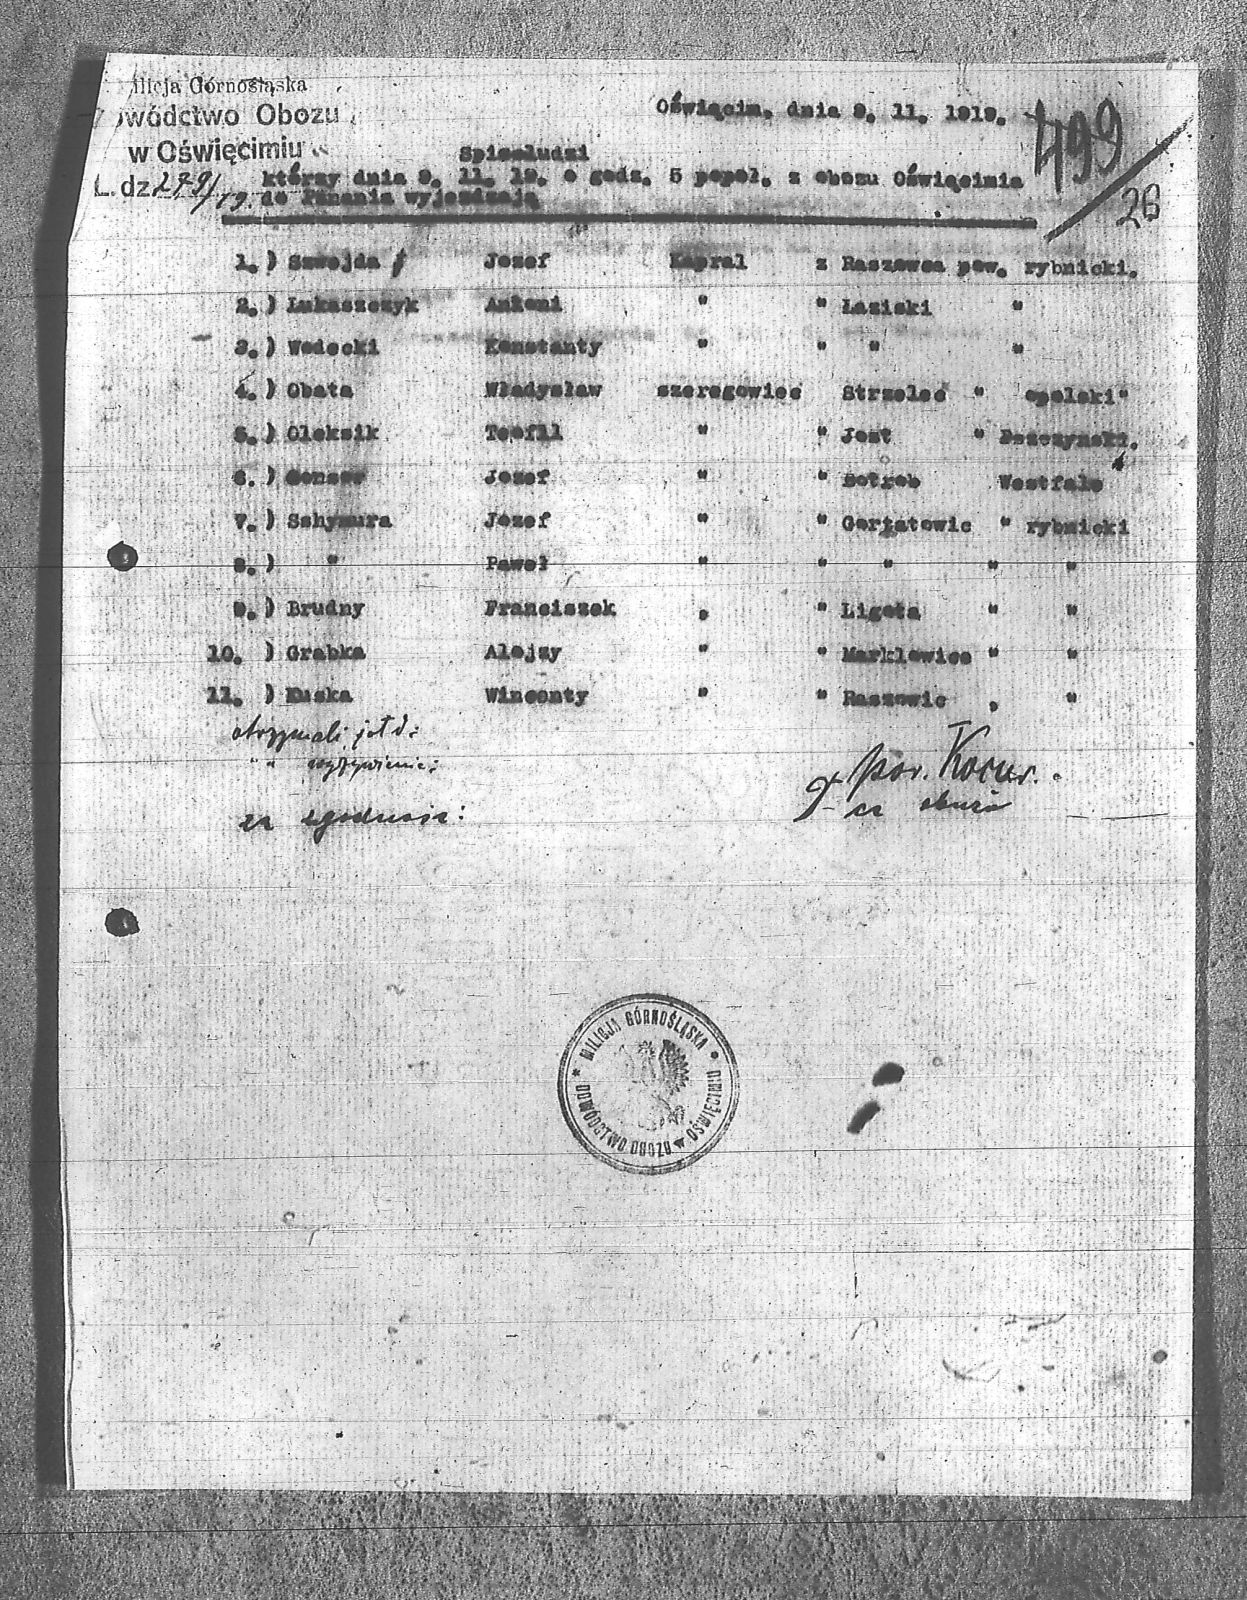 ilicja Górnośląska
owództwo Obozu
w Oświęcimiu
L. dz. 279/19.
Oświęcim, dnia 9. 11. 1919.
499/26
Spis ludzi
którzy dnia 9. 11. 19. o godz. 5 popoł. z obozu Oświęcimia
do Poznania wyjeżdzają
1. ) Szwejda Jozef Kapral z Raszowca pow. rybnicki.
2. ) Łukaszczyk Antoni " " Łaziski "
3. ) Wodecki Konstanty " " " "
4. ) Obata Władysław szeregowiec Strzelec " opolski"
5. ) Oleksik Teofil " " Jost " Pszczynski.
6. ) Jozef " " Botrob Westfale
7. ) Sshymura Jozef " " Gorjatowic " rybnicki
8. ) " Paweł " " " " "
9. ) Brudny Franciszek " " Ligota " "
10. ) Grabka Alojzy " " Marklowice " "
11. ) Kuska Winconty " " Raszowic , "
otrzymali żołd:
" " wyżywienie:
za zgodność:
por. Kocur.
MILICJA GÓRNOŚLĄSKA * DOWÓDZTWO OBOZU * OŚWIĘCIMIU